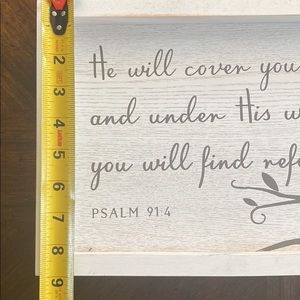 He will cover you
and under His w
you will find refu
PSALM 91:4
2
3
4
5
6
7
8
9